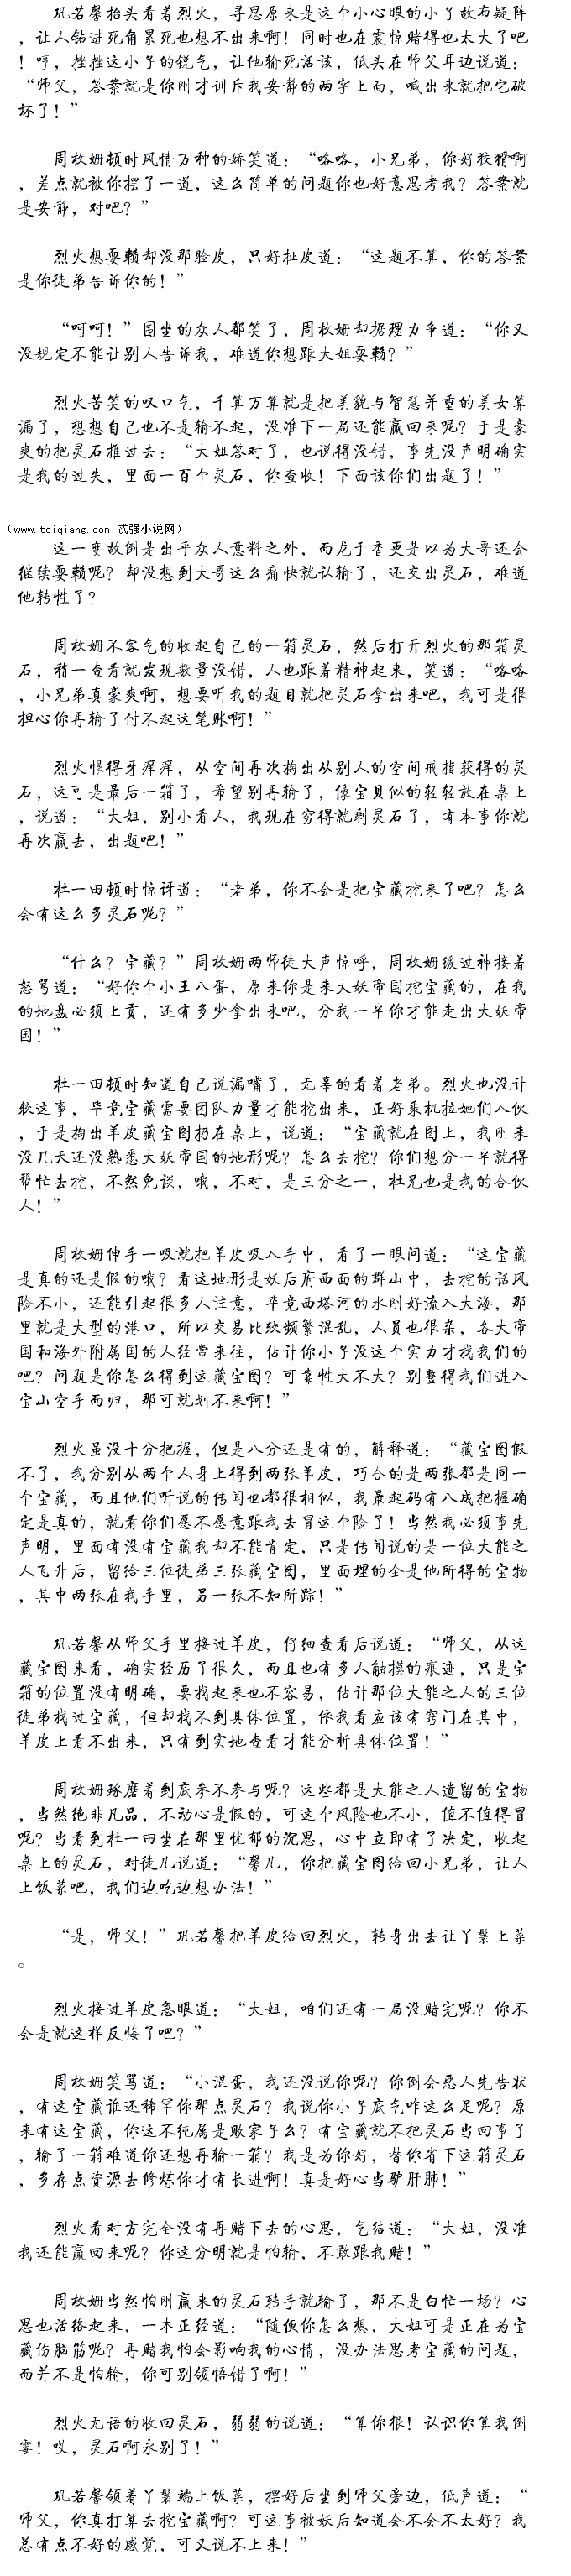 巩若馨抬头看着烈火，寻思原来是这个小心眼的小子故布疑阵
，让人钻进死角累死也想不出来啊！同时也在震惊赌得也太大了吧
！哼，挫挫这小子的锐气，让他输死活该，低头在师父耳边说道：
“师父，答案就是你刚才训斥我安静的两字上面，喊出来就把它破
坏了！”
周枚姗顿时风情万种的娇笑道：“咯咯，小兄弟，你好狡猾啊
，差点就被你摆了一道，这么简单的问题你也好意思考我？答案就
是安静，对吧？”
烈火想耍赖却没那脸皮，只好扯皮道：“这题不算，你的答案
是你徒弟告诉你的！”
“呵呵！”围坐的众人都笑了，周枚姗却据理力争道：“你又
没规定不能让别人告诉我，难道你想跟大姐耍赖？”
烈火苦笑的叹口气，千算万算就是把美貌与智慧并重的美女算
漏了，想想自己也不是输不起，没准下一局还能赢回来呢？于是豪
爽的把灵石推过去：“大姐答对了，也说得没错，事先没声明确实
是我的过失，里面一百个灵石，你查收！下面该你们出题了！”
（www.teiqiang.com 忒强小说网）
这一变故倒是出乎众人意料之外，而龙于香更是以为大哥还会
继续耍赖呢？却没想到大哥这么痛快就认输了，还交出灵石，难道
他转性了？
周枚姗不客气的收起自己的一箱灵石，然后打开烈火的那箱灵
石，稍一查看就发现数量没错，人也跟着精神起来，笑道：“咯咯
，小兄弟真豪爽啊，想要听我的题目就把灵石拿出来吧，我可是很
担心你再输了付不起这笔账啊！”
烈火恨得牙痒痒，从空间再次掏出从别人的空间戒指获得的灵
石，这可是最后一箱了，希望别再输了，像宝贝似的轻轻放在桌上
，说道：“大姐，别小看人，我现在穷得就剩灵石了，有本事你就
再次赢去，出题吧！”
杜一田顿时惊讶道：“老弟，你不会是把宝藏挖来了吧？怎么
会有这么多灵石呢？”
“什么？宝藏？”周枚姗两师徒大声惊呼，周枚姗缓过神接着
怒骂道：“好你个小王八蛋，原来你是来大妖帝国挖宝藏的，在我
的地盘必须上贡，还有多少拿出来吧，分我一半你才能走出大妖帝
国！”
杜一田顿时知道自己说漏嘴了，无辜的看着老弟。烈火也没计
较这事，毕竟宝藏需要团队力量才能挖出来，正好乘机拉她们入伙
，于是掏出羊皮藏宝图扔在桌上，说道：“宝藏就在图上，我刚来
没几天还没熟悉大妖帝国的地形呢？怎么去挖？你们想分一半就得
帮忙去挖，不然免谈，哦，不对，是三分之一，杜兄也是我的合伙
人！”
周枚姗伸手一吸就把羊皮吸入手中，看了一眼问道：“这宝藏
是真的还是假的哦？看这地形是妖后府西面的群山中，去挖的话风
险不小，还能引起很多人注意，毕竟西塔河的水刚好流入大海，那
里就是大型的港口，所以交易比较频繁混乱，人員也很杂，各大帝
国和海外附属国的人经常来往，估计你小子没这个实力才找我们的
吧？问题是你怎么得到这藏宝图？可靠性大不大？别整得我们进入
宝山空手而归，那可就划不来啊！”
烈火虽没十分把握，但是八分还是有的，解释道：“藏宝图假
不了，我分别从两个人身上得到两张羊皮，巧合的是两张都是同一
个宝藏，而且他们听说的传闻也都很相似，我最起码有八成把握确
定是真的，就看你们愿不愿意跟我去冒这个险了！当然我必须事先
声明，里面有没有宝藏我却不能肯定，只是传闻说的是一位大能之
人飞升后，留给三位徒弟三张藏宝图，里面埋的全是他所得的宝物
，其中两张在我手里，另一张不知所踪！”
巩若馨从师父手里接过羊皮，仔细查看后说道：“师父，从这
藏宝图来看，确实经历了很久，而且也有多人触摸的痕迹，只是宝
箱的位置没有明确，要找起来也不容易，估计那位大能之人的三位
徒弟找过宝藏，但却找不到具体位置，依我看应该有窍门在其中，
羊皮上看不出来，只有到实地查看才能分析具体位置！”
周枚姗琢磨着到底参不参与呢？这些都是大能之人遗留的宝物
，当然绝非凡品，不动心是假的，可这个风险也不小，值不值得冒
呢？当看到杜一田坐在那里忧郁的沉思，心中立即有了决定，收起
桌上的灵石，对徒儿说道：“馨儿，你把藏宝图给回小兄弟，让人
上饭菜吧，我们边吃边想办法！”
“是，师父！”巩若馨把羊皮给回烈火，转身出去让丫鬟上菜
。
烈火接过羊皮急眼道：“大姐，咱们还有一局没赌完呢？你不
会是就这样反悔了吧？”
周枚姗笑骂道：“小混蛋，我还没说你呢？你倒会恶人先告状
，有这宝藏谁还稀罕你那点灵石？我说你小子底气咋这么足呢？原
来有这宝藏，你这不纯属是败家子么？有宝藏就不把灵石当回事了
，输了一箱难道你还想再输一箱？我是为你好，替你省下这箱灵石
，多存点资源去修炼你才有长进啊！真是好心当驴肝肺！”
烈火看对方完全没有再赌下去的心思，气结道：“大姐，没准
我还能赢回来呢？你这分明就是怕输，不敢跟我赌！”
周枚姗当然怕刚赢来的灵石转手就输了，那不是白忙一场？心
思也活络起来，一本正经道：“随便你怎么想，大姐可是正在为宝
藏伤脑筋呢？再赌我怕会影响我的心情，没办法思考宝藏的问题，
而并不是怕输，你可别领悟错了啊！”
烈火无语的收回灵石，弱弱的说道：“算你狠！认识你算我倒
霉！哎，灵石啊永别了！”
巩若馨领着丫鬟端上饭菜，摆好后坐到师父旁边，低声道：“
师父，你真打算去挖宝藏啊？可这事被妖后知道会不会不太好？我
总有点不好的感觉，可又说不上来！”